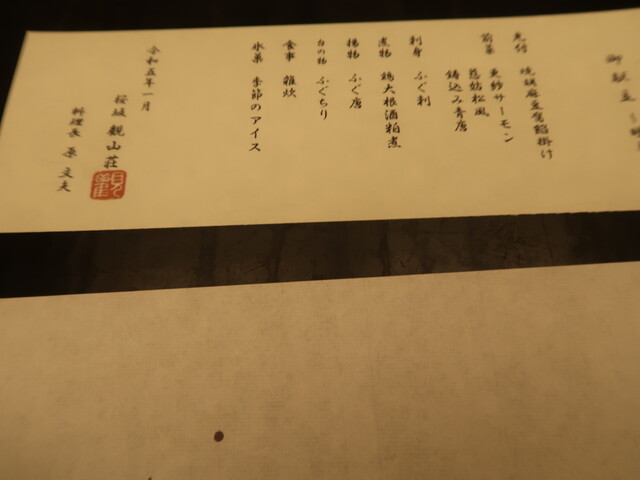 御献立
先付 焼胡麻豆腐餡掛け
前菜 更紗サーモン
慈姑松風
鋳込み青唐
刺身 ふぐ刺
煮物 鰤大根酒粕煮
揚物 ふぐ唐
台の物 ふぐちり
食事 雑炊
氷菓 季節のアイス
令和五年一月
桜坂 観山荘
料理長 原文夫